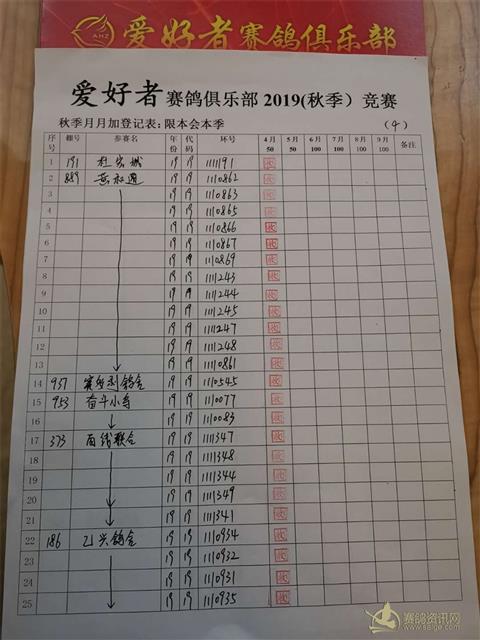 AHZ
爱好者赛鸽俱乐部
爱好者赛鸽俱乐部 2019(秋季)竞赛
秋季月月加登记表:限本会本季 (4)
序号 棚号 参赛名 年份 代码 环号 4月50 5月50 6月100 7月100 8月100 9月100 备注
1 191 杜宏城 19 19 1111191 收
2 889 黄和通 19 19 1110862 收
3 19 19 1110863 收
4 19 19 1110865 收
5 19 19 1110866 收
6 19 19 1110867 收
7 19 19 1110869 收
8 19 19 1111243 收
9 19 19 1111244 收
10 19 19 1111245 收
11 19 19 1111247 收
12 19 19 1111248 收
13 19 19 1110861 收
14 937 鸽舍 19 19 1110545 收
15 953 奋斗小寺 19 19 1110077 收
16 19 19 1110083 收
17 373 西线联合 19 19 1111347 收
18 19 19 1111348 收
19 19 19 1111344 收
20 19 19 1111349 收
21 19 19 1111341 收
22 186 乙兴鸽舍 19 19 1110934 收
23 19 19 1110932 收
24 19 19 1110931 收
25 19 19 1110935 收
赛鸽资讯网
www.saige.com